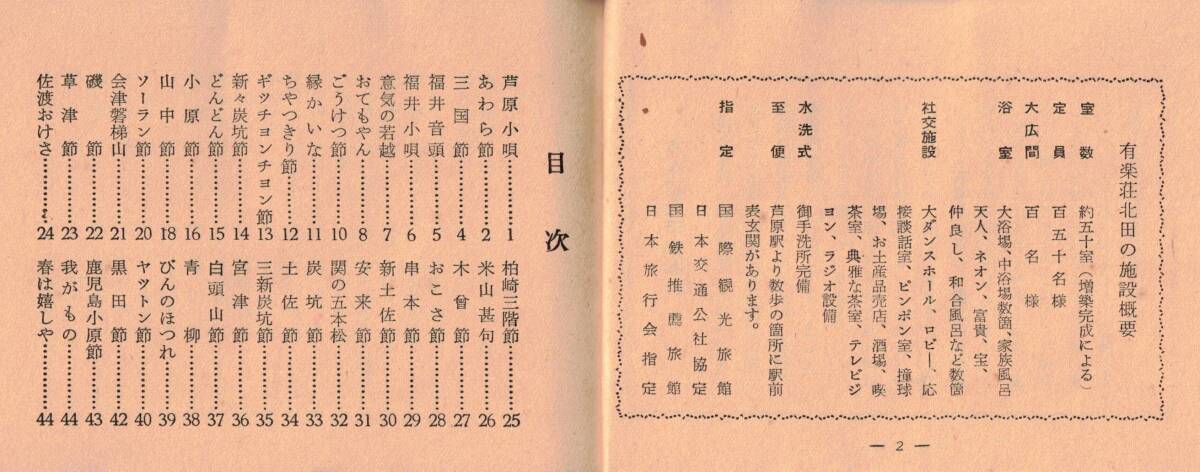 有楽荘北田の施設概要
室数 約五十室(増築完成による)
定員 百五十名様
大広間 百名様
浴室 大浴場、中浴場数箇、家族風呂
天人、ネオン、富貴、宝、
仲良し、和合風呂など数箇
社交施設 大ダンスホール、ロビー、応
接談話室、ピンポン室、撞球
場、お土産品売店、酒場、喫
茶室、典雅な茶室、テレビジ
ヨン、ラジオ設備
水洗式 御手洗所完備
至便 芦原駅より数歩の箇所に駅前
表玄関があります。
指定 国際観光旅館
日本交通公社協定
国鉄推薦旅館
日本旅行会指定
— 2 —
目次
芦原小唄………1
あわら節………2
三国節………4
福井音頭………5
福井小唄………6
意気の若越………7
おてもやん………8
ごうけつ節………10
縁かいな………11
ちやつきり節………12
ギッチョンチョン節………13
新々炭坑節………14
どんどん節………15
小原節………16
山中節………18
ソーラン節………20
会津磐梯山………21
磯節………22
草津節………23
佐渡おけさ………24
柏崎三階節………25
米山甚句………26
木曾節………27
おこさ節………28
串本節………29
新土佐節………30
安来節………31
関の五本松………32
炭坑節………33
土佐節………34
三新炭坑節………35
宮津節………36
白頭山節………37
青柳………38
びんのほつれ………39
ヤットン節………40
黒田節………42
鹿児島小原節………43
我がもの………44
春は嬉しや………44